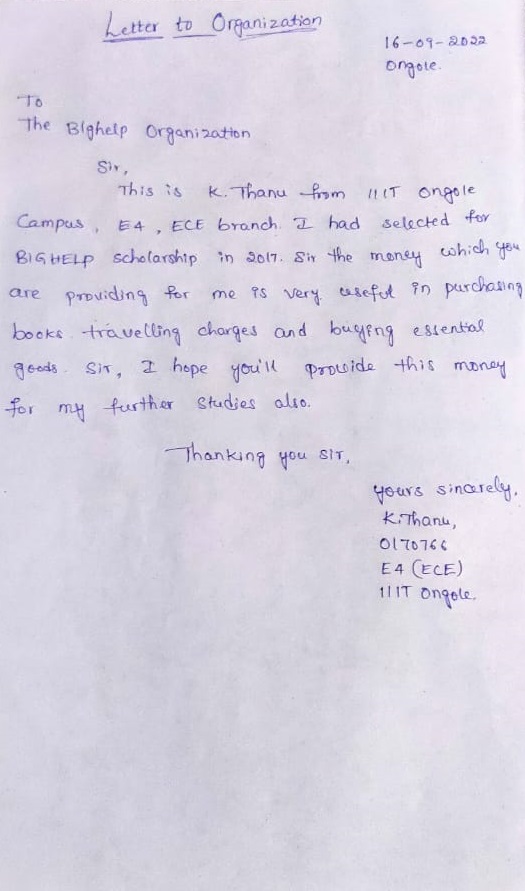 Letter to Organization
16-09-2022
Ongole.
To
The BIghelp Organization
Sir,
This is K. Thanu from IIIT Ongole
Campus, E4, ECE branch. I had selected for
BIGHELP scholarship in 2017. Sir the money which you
are providing for me is very useful in purchasing
books travelling charges and buying essential
goods. Sir, I hope you'll provide this money
for my further studies also.
Thanking you sir,
yours sincerely,
K.Thanu,
O170766
E4 (ECE)
IIIT Ongole.